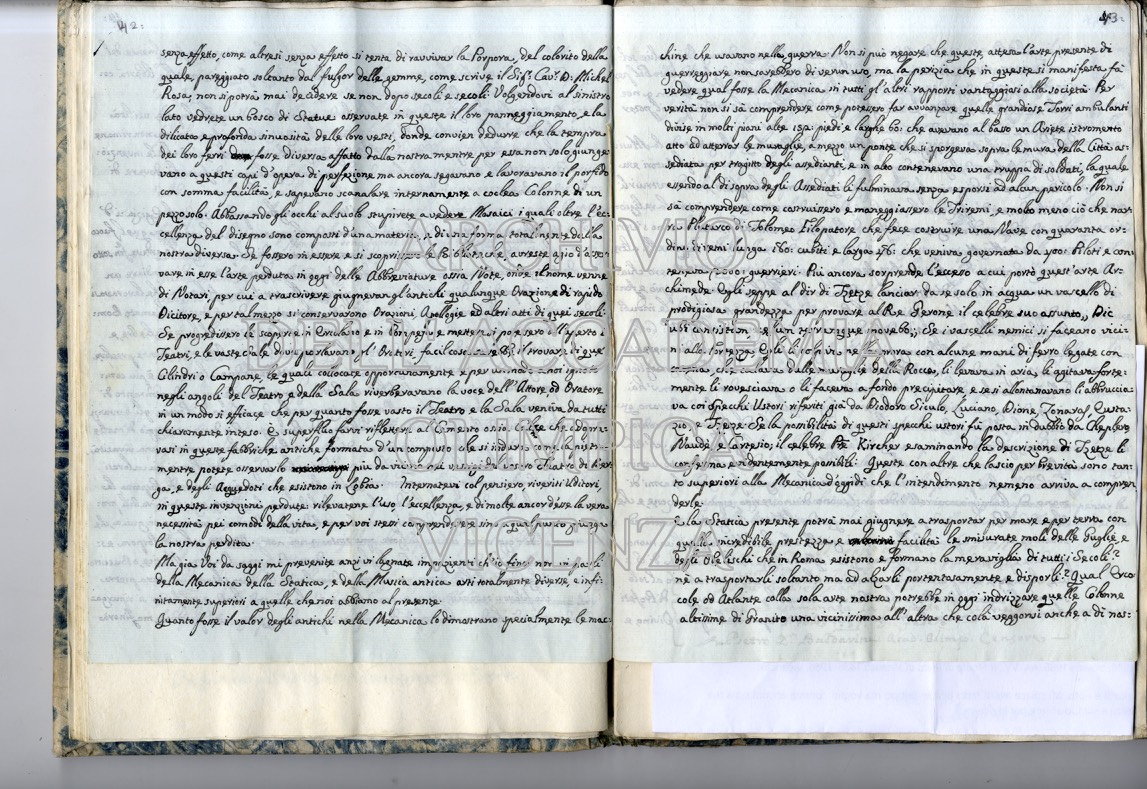 42:
senza effetto, come altresi senza effetto si tenta di ravvivar la Porpora, del colorito della
quale, pareggiato soltanto dal fulgor della gemme, come scrive il Sig.r Cav.r D: Michel
Rosa, non si potrà mai decidere se non dopo secoli e secoli. Volgendovi al sinistro
lato vedrete un bosco di Statue osservate in queste il loro panneggiamento, e la
dilicata e profonda sinuosità delle loro vesti, donde convien dedurre che la tempra
dei loro ferri fosse diversa affatto dalla nostra mentre per essa non solo giunge-
vano a questi capi d'opera di perfezione ma ancora segavano e lavoravano il porfido
con somma facilità, e sapevano scanalare internamente a coclea Colonne di un
pezzo solo. Abbassando gl'occhi al suolo stupirete a vedere Mosaici i quali oltre l'ec-
cellenza del disegno sono composti d'una materia, e di una forma totalmente dalla
nostra diversa. Se fossero in essere e si scoprissero le Biblioteche, avreste agio d'osser-
vare in esse l'arte perduta in oggi delle Abbreviature ossia Note, onde il nome venne
di Notari, per cui a trascrivere giugnevan gl'antichi qualunque Orazione di rapido
Dicitore, e per tal mezzo si conservarono Orazioni, Apologie ed altri atti di quei secoli.
Se progredissero le scoperte in Ercolano e in Pompeja e mettersi potessero all'aperto i
Teatri, e le vaste sale dove parlavano gl'Oratori, facil cosa sarebbe il trovarvi que
Cilindri o Campane, le quali collocate opportunamente e per un modo a noi ignoto
negli angoli del Teatro e della Sala riverberavano la voce dell'Attore, od Oratore
in un modo sì efficace che per quanto fosse vasto il Teatro e la Sala veniva da tutti
chiaramente inteso. È superfluo farvi riflettere al Cimento o sia Calce che adopre-
vasi in queste fabbriche antiche formata d'un composto che si indura
mentre potete osservarlo più da vicino nei vestigj del vostro Teatro di Ber-
ga, e degli Acquedoti che esistono in Lobia. Internatevi col pensiero, riveriti Uditori,
in queste invenzioni perdute: rilevatene l'uso l'eccellenza, e di molte ancor d'esse la vera
necessità pei comodi della vita, e per voi stessi comprenderete sino a qual punto giunga
la nostra perdita.
Ma già Voi da saggi mi prevenite anzi vi lagnate impazienti ch'io fin or non vi parli
della Mecanica della Statica, e della Musica antica arti totalmente diverse, e infi-
nitamente superiori a quelle che noi abbiamo al presente.
Quanto fosse il valor degli antichi nella Mecanica lo dimostrano spezialmente le mac-
43:
chine che usavano nella guerra. Non si può negare che queste, attesa l'arte presente di
guerreggiare non sarebbero di verun uso, ma la perizia che in queste si manifesta fà
vedere qual fosse la Mecanica in tutti gl'altri rapporti vantaggiosi alla società. Per
verità non si sà comprendere come potessero far avvanzare quelle grandiose Torri ambulanti
divise in molti piani alte 152: piedi e larghe 60: che avevano al basso un Ariete istromento
atto ad atterrar le muraglie, a mezzo un ponte che si sporgeva sopra le mura della Città as-
sediata per tragitto degli assedianti, e in alto contenevano una truppa di soldati, la quale
essendo al di sopra degli Assediati li fulminava senza esporsi ad alcun pericolo. Non si
sà comprendere come costruissero e maneggiassero le Triremi, e molto meno ciò che nar-
ra Plutarco di Tolomeo Filopatore che fece costruire una Nave con quaranta or-
dini di remi lunga 180: cubiti e larga 76: che veniva governata da 400: Piloti e con-
teneva guerrieri. Più ancora sorprende l'eccesso a cui portò quest'arte Ar-
chimede. Egli seppe al dir di Tzetze lanciar da se solo in acqua un vascello di
prodigiosa grandezza per provare al Re Gerone il celebre suo assunto,, Dic
ubi consistam Se i vascelli nemici si faceano vici-
ni alla Fortezza, Egli li colpiva nella prora con alcune mani di ferro legate con
catena, che calava dalle muraglie della Rocca, li levava in aria, li agitava forte-
mente li rovesciava o li faceva a fondo precipitare e se si allontanavano li abbrucia-
va coi Specchi Ustori riferiti già da Diodoro Siculo, Luciano, Dione, Zonaras, Eusta-
zio, e Tzetze. Se la possibilità di questi specchi ustori fù posta in dubbio da Chepler
Naudè, e Cartesio; il celebre P. Kircher esaminando la descrizione di Tzetze li
confessa evidentemente possibili. Queste con altre che lascio per brevità sono tan-
to superiori alla Mecanica d'oggidì che l'intendimento nemeno arriva a compren-
derle.
E la Statica presente potrà mai giugnere a trasportar per mare e per terra con
quella incredibile prestezza e facilità le smisurate moli delle Guglie, e
degli Obelischi che in Roma esistono e formano la meraviglia di tutti i Secoli?
nè a trasportarli soltanto ma ad alzarli portentosamente e disporli? Qual Erco-
cole od Atlante colla sola arte nostra potrebbe in oggi indrizzare quelle Colonne
altissime di Granito una vicinissima all'altra che colà veggonsi anche a dì nos-
ARCHIVIO
DELL'ACCADEMIA
OLIMPICA
VICENZA